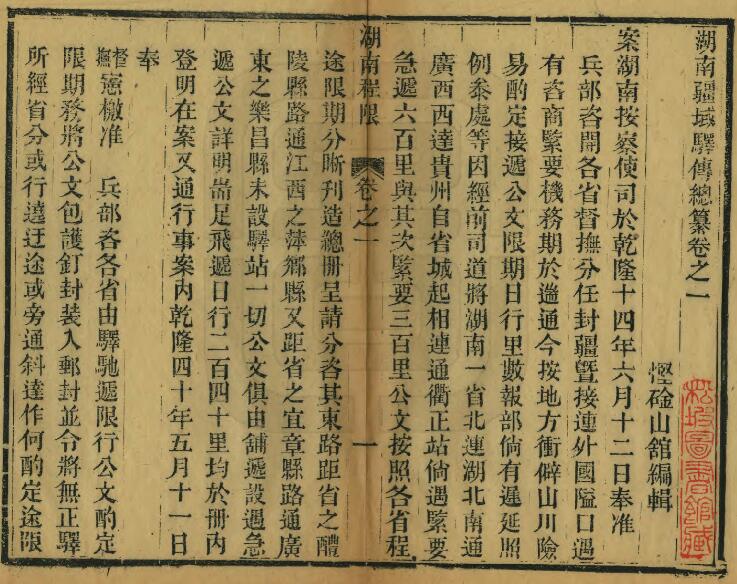 湖南疆域驛傳總纂卷之一
慳硷山舘編輯
松坡圖書館藏
案湖南按察使司於乾隆十四年六月十二日奉准
兵部咨開各省督撫分任封疆曁接連外國隘口遇
有咨商緊要機務期於迯通今按地方衝僻山川險
易酌定接遞公文限期日行里數報部倘有遲延照
例叅處等因經前司道將湖南一省北連湖北南通
廣西西達貴州自省城起相連通衢正站倘遇緊要
急遞六百里與其次緊要三百里公文按照各省程
湖南程限 卷之一 一
途限期分晰刊造總冊呈請分咨其東路距省之醴
陵縣路通江西之萍鄉縣又距省之宜章縣路通廣
東之樂昌縣未設驛站一切公文俱由舖遞設遇急
遞公文詳明耑足飛遞日行二百四十里均於冊內
登明在案又通行事案內乾隆四十年五月十一日
奉
督撫憲檄准 兵部咨各省由驛馳遞限行公文酌定
限期務將公文包護釘封装入郵封並令將無正驛
所經省分或行遶迂途或旁通斜達作何酌定途限